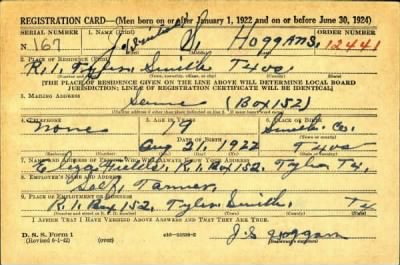 REGISTRATION CARD—(Men born on or after January 1, 1922 and on or before June 30, 1924)
SERIAL NUMBER 1. NAME (Print) ORDER NUMBER
N 167 J. S. HOGGANS. 12441
2. PLACE OF RESIDENCE (Print)
R.1. Tyler. Smith Texas
[THE PLACE OF RESIDENCE GIVEN ON THE LINE ABOVE WILL DETERMINE LOCAL BOARD
JURISDICTION; LINE 2 OF REGISTRATION CERTIFICATE WILL BE IDENTICAL]
3. MAILING ADDRESS
Same (Box 152)
4. TELEPHONE 5. AGE IN YEARS 6. PLACE OF BIRTH
None 19 Smith Co.
DATE OF BIRTH
Aug 21, 1922 Texas
7. NAME AND ADDRESS OF PERSON WHO WILL ALWAYS KNOW YOUR ADDRESS
R.1. Box 152. Tyler Tx.
8. EMPLOYER'S NAME AND ADDRESS
Self,
9. PLACE OF EMPLOYMENT OR BUSINESS
R.1. Box 152. Tyler. Smith. Tx
I AFFIRM THAT I HAVE VERIFIED ABOVE ANSWERS AND THAT THEY ARE TRUE.
D. S. S. Form 1
(Revised 6-1-42) (over)